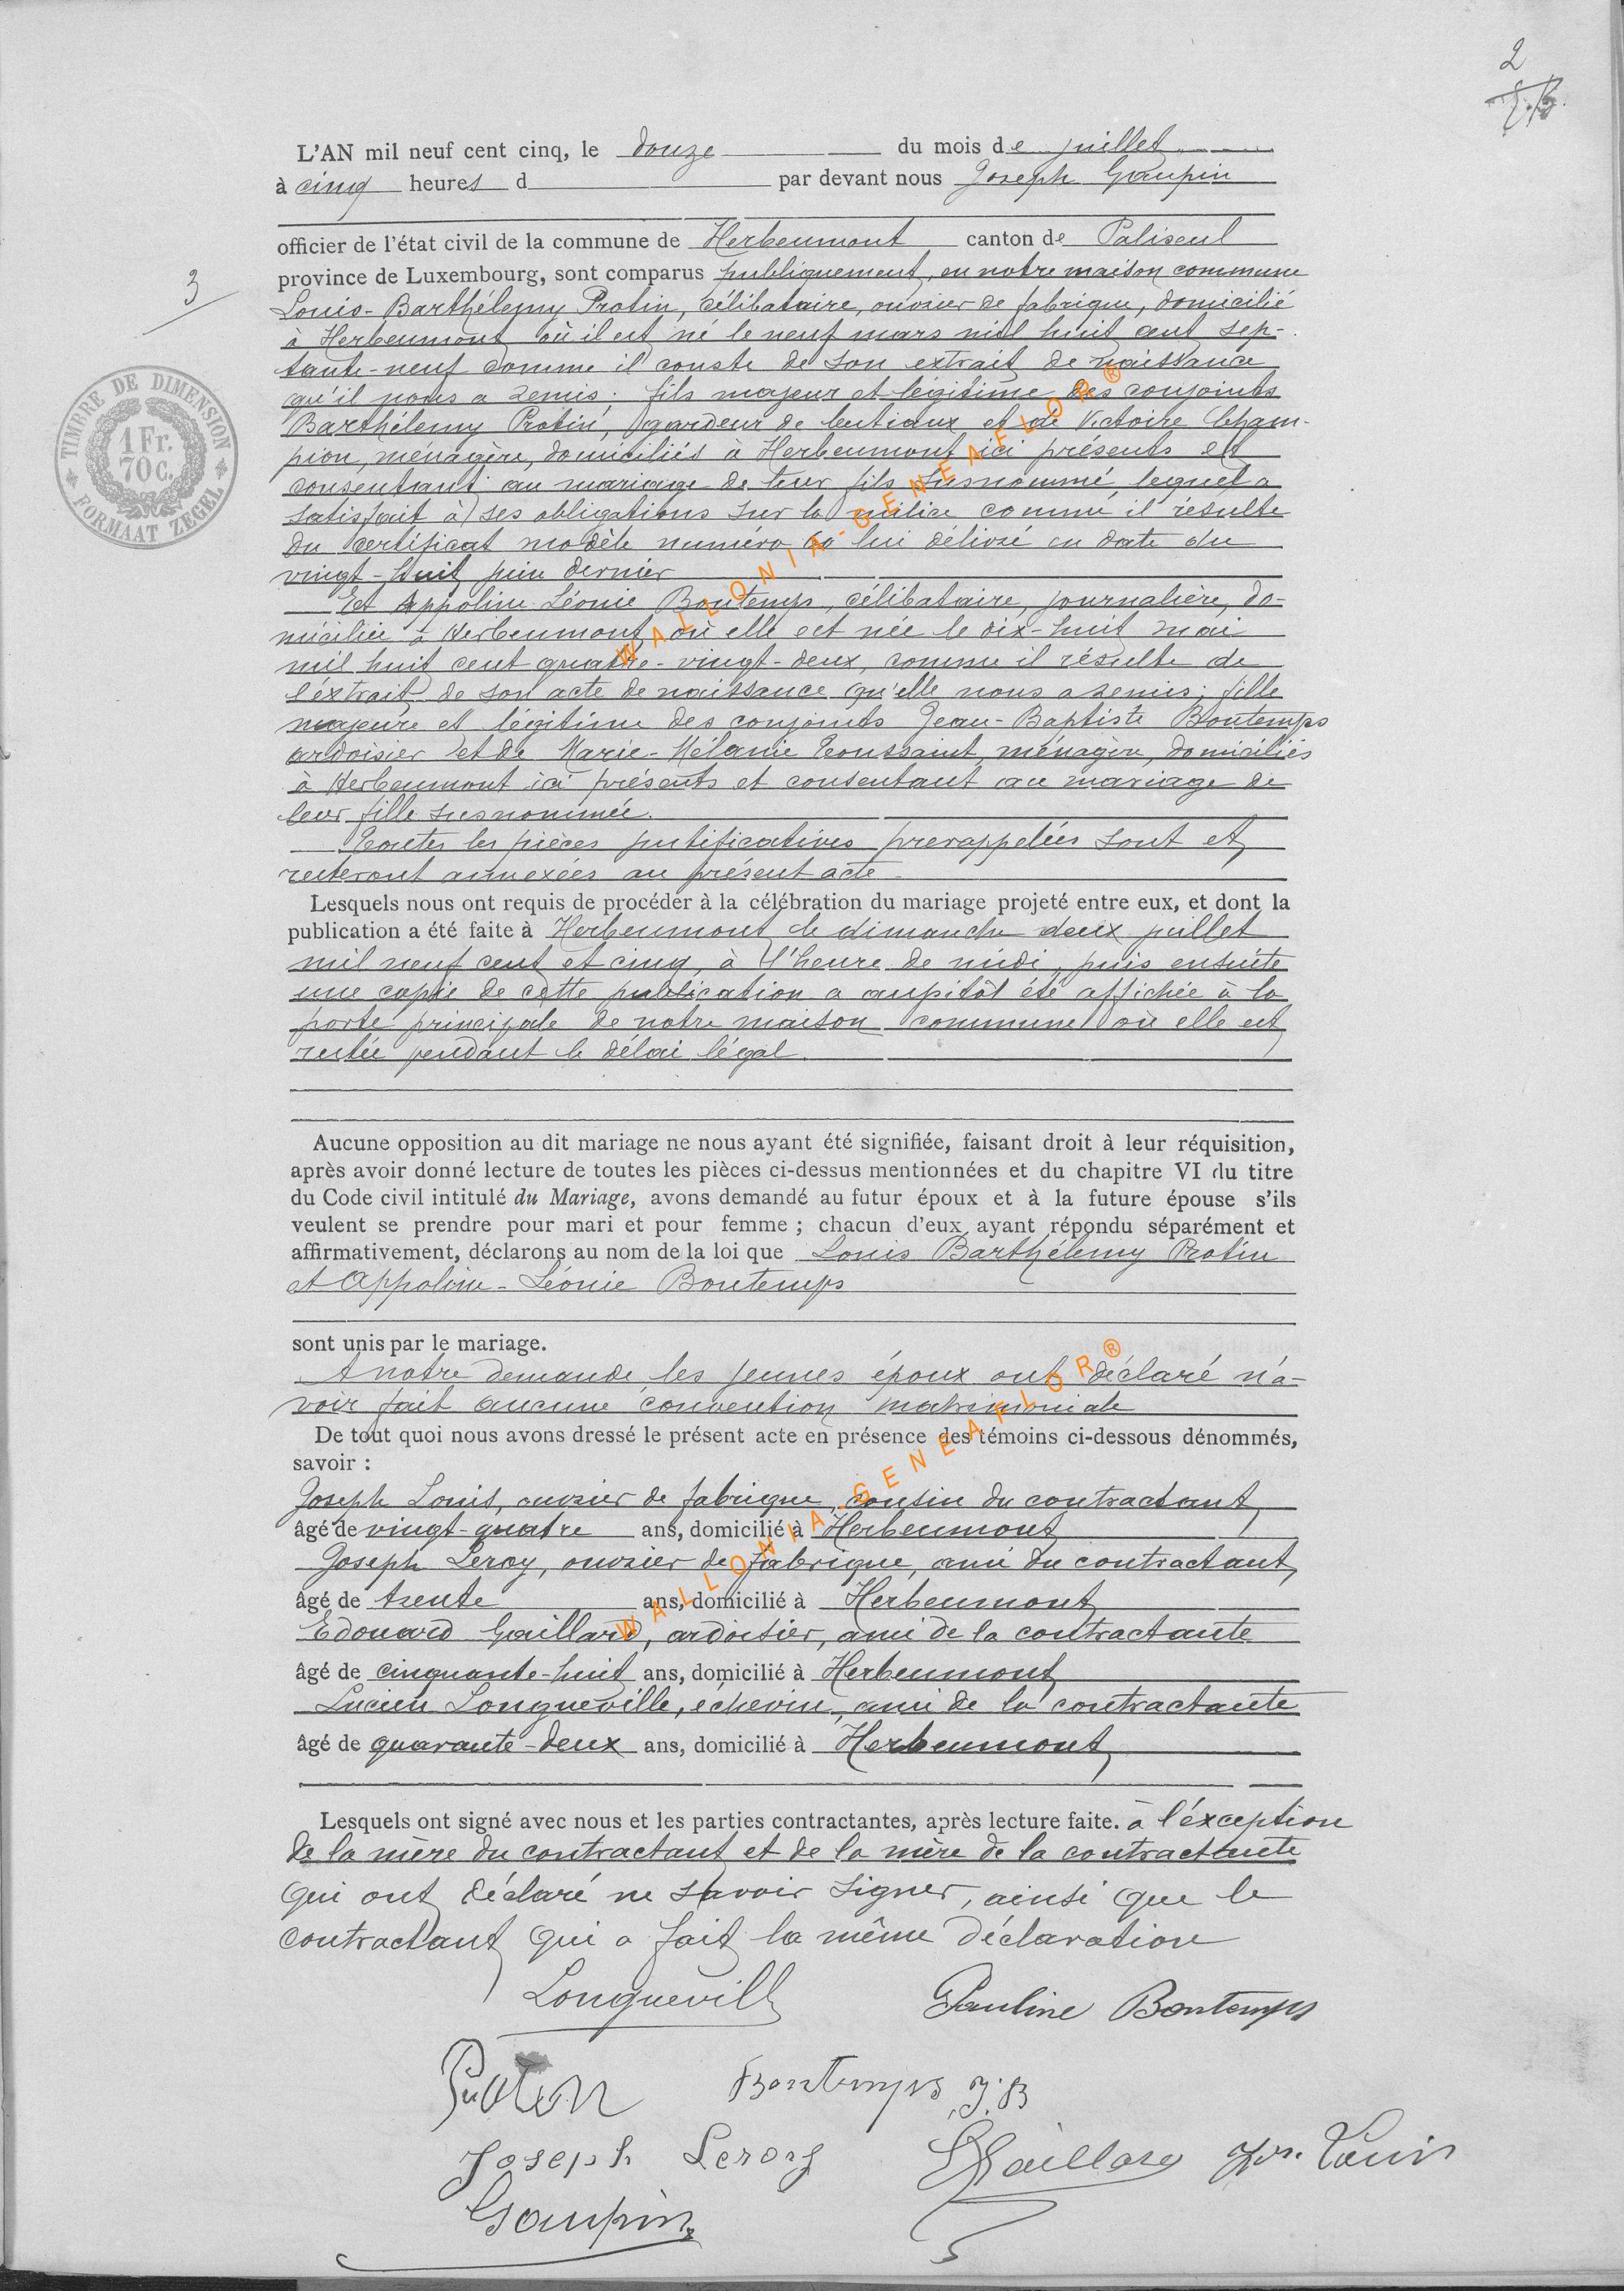 2
L'AN mil neuf cent cinq, le douze du mois de juillet
à cinq heures d par devant nous Joseph Goupin
officier de l'état civil de la commune de Herbeumont canton de Paliseul
province de Luxembourg, sont comparus publiquement, en notre maison commune
3
Louis-Barthélemy Protin, célibataire, ouvrier de fabrique, domicilié
à Herbeumont où il est né le neuf mars mil huit cent sep-
tante-neuf comme il conste de son extrait de naissance
qu'il nous a remis; fils majeur et légitime des conjoints
Barthélemy Protin, gardeur de bestiaux et de Victoire Cham-
pion, ménagère, domiciliés à Herbeumont ici présents et
consentant au mariage de leur fils susnommé, lequel a
satisfait à ses obligations sur la milice comme il résulte
du certificat modèle numéro lui délivré en date du
vingt-huit juin dernier
Et Appoline Léonie Bontemps, célibataire, journalière, do-
miciliée à Herbeumont où elle est née le dix-huit mai
mil huit cent quatre-vingt-deux, comme il résulte de
l'extrait de son acte de naissance qu'elle nous a remis; fille
majeure et légitime des conjoints Jean-Baptiste Bontemps
ardoisier et de Marie-Mélanie Toussaint, ménagère, domiciliés
à Herbeumont ici présents et consentant au mariage de
leur fille susnommée.
Toutes les pièces justificatives prérappelées sont et
resteront annexées au présent acte
TIMBRE DE DIMENSION
1 Fr.
70 c.
FORMAAT ZEGEL
Lesquels nous ont requis de procéder à la célébration du mariage projeté entre eux, et dont la
publication a été faite à Herbeumont le dimanche deux juillet
mil neuf cent et cinq, à l'heure de midi, puis ensuite
une copie de cette publication a aussitôt été affichée à la
porte principale de notre maison commune où elle est
restée pendant le délai légal.
Aucune opposition au dit mariage ne nous ayant été signifiée, faisant droit à leur réquisition,
après avoir donné lecture de toutes les pièces ci-dessus mentionnées et du chapitre VI du titre
du Code civil intitulé du Mariage, avons demandé au futur époux et à la future épouse s'ils
veulent se prendre pour mari et pour femme ; chacun d'eux ayant répondu séparément et
affirmativement, déclarons au nom de la loi que Louis Barthélemy Protin
et Appoline-Léonie Bontemps
sont unis par le mariage.
A notre demande les jeunes époux ont déclaré n'a-
voir fait aucune convention matrimoniale
De tout quoi nous avons dressé le présent acte en présence des témoins ci-dessous dénommés,
savoir :
Joseph Louis, ouvrier de fabrique, cousin du contractant,
âgé de vingt-quatre ans, domicilié à Herbeumont
Joseph Leroy, ouvrier de fabrique, ami du contractant,
âgé de trente ans, domicilié à Herbeumont
Edouard Gaillard, ardoisier, ami de la contractante
âgé de cinquante-huit ans, domicilié à Herbeumont
Lucien Longueville, échevin, ami de la contractante
âgé de quarante-deux ans, domicilié à Herbeumont
Lesquels ont signé avec nous et les parties contractantes, après lecture faite. à l'exception
de la mère du contractant et de la mère de la contractante
qui ont déclaré ne savoir signer, ainsi que le
contractant qui a fait la même déclaration
Longueville Pauline Bontemps
Protin Bontemps J.B
Joseph Leroy E Gaillard Jos. Louis
Goupin
WALLONIA-GENEAFLOR®
WALLONIA-GENEAFLOR®